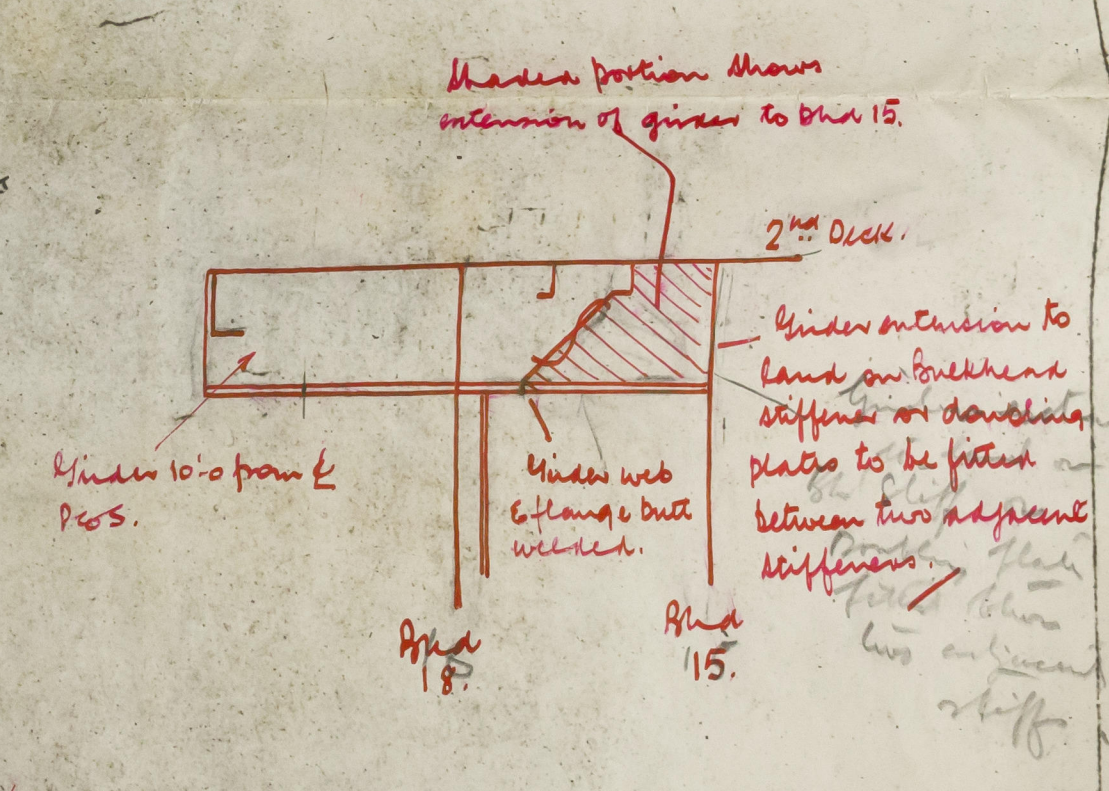 Shaded portion shows
extension of girder to Bhd 15.
2nd Deck.
Girder extension to
land on Bulkhead
stiffener or doubling
plates to be fitted
between two adjacent
stiffeners.
Girder 10'-0 from ℄
P&S.
Girder web
& flange butt
welded.
Bhd
18.
Bhd
15.
Stiff
Doubling
fitted
two adjacent
stiffs